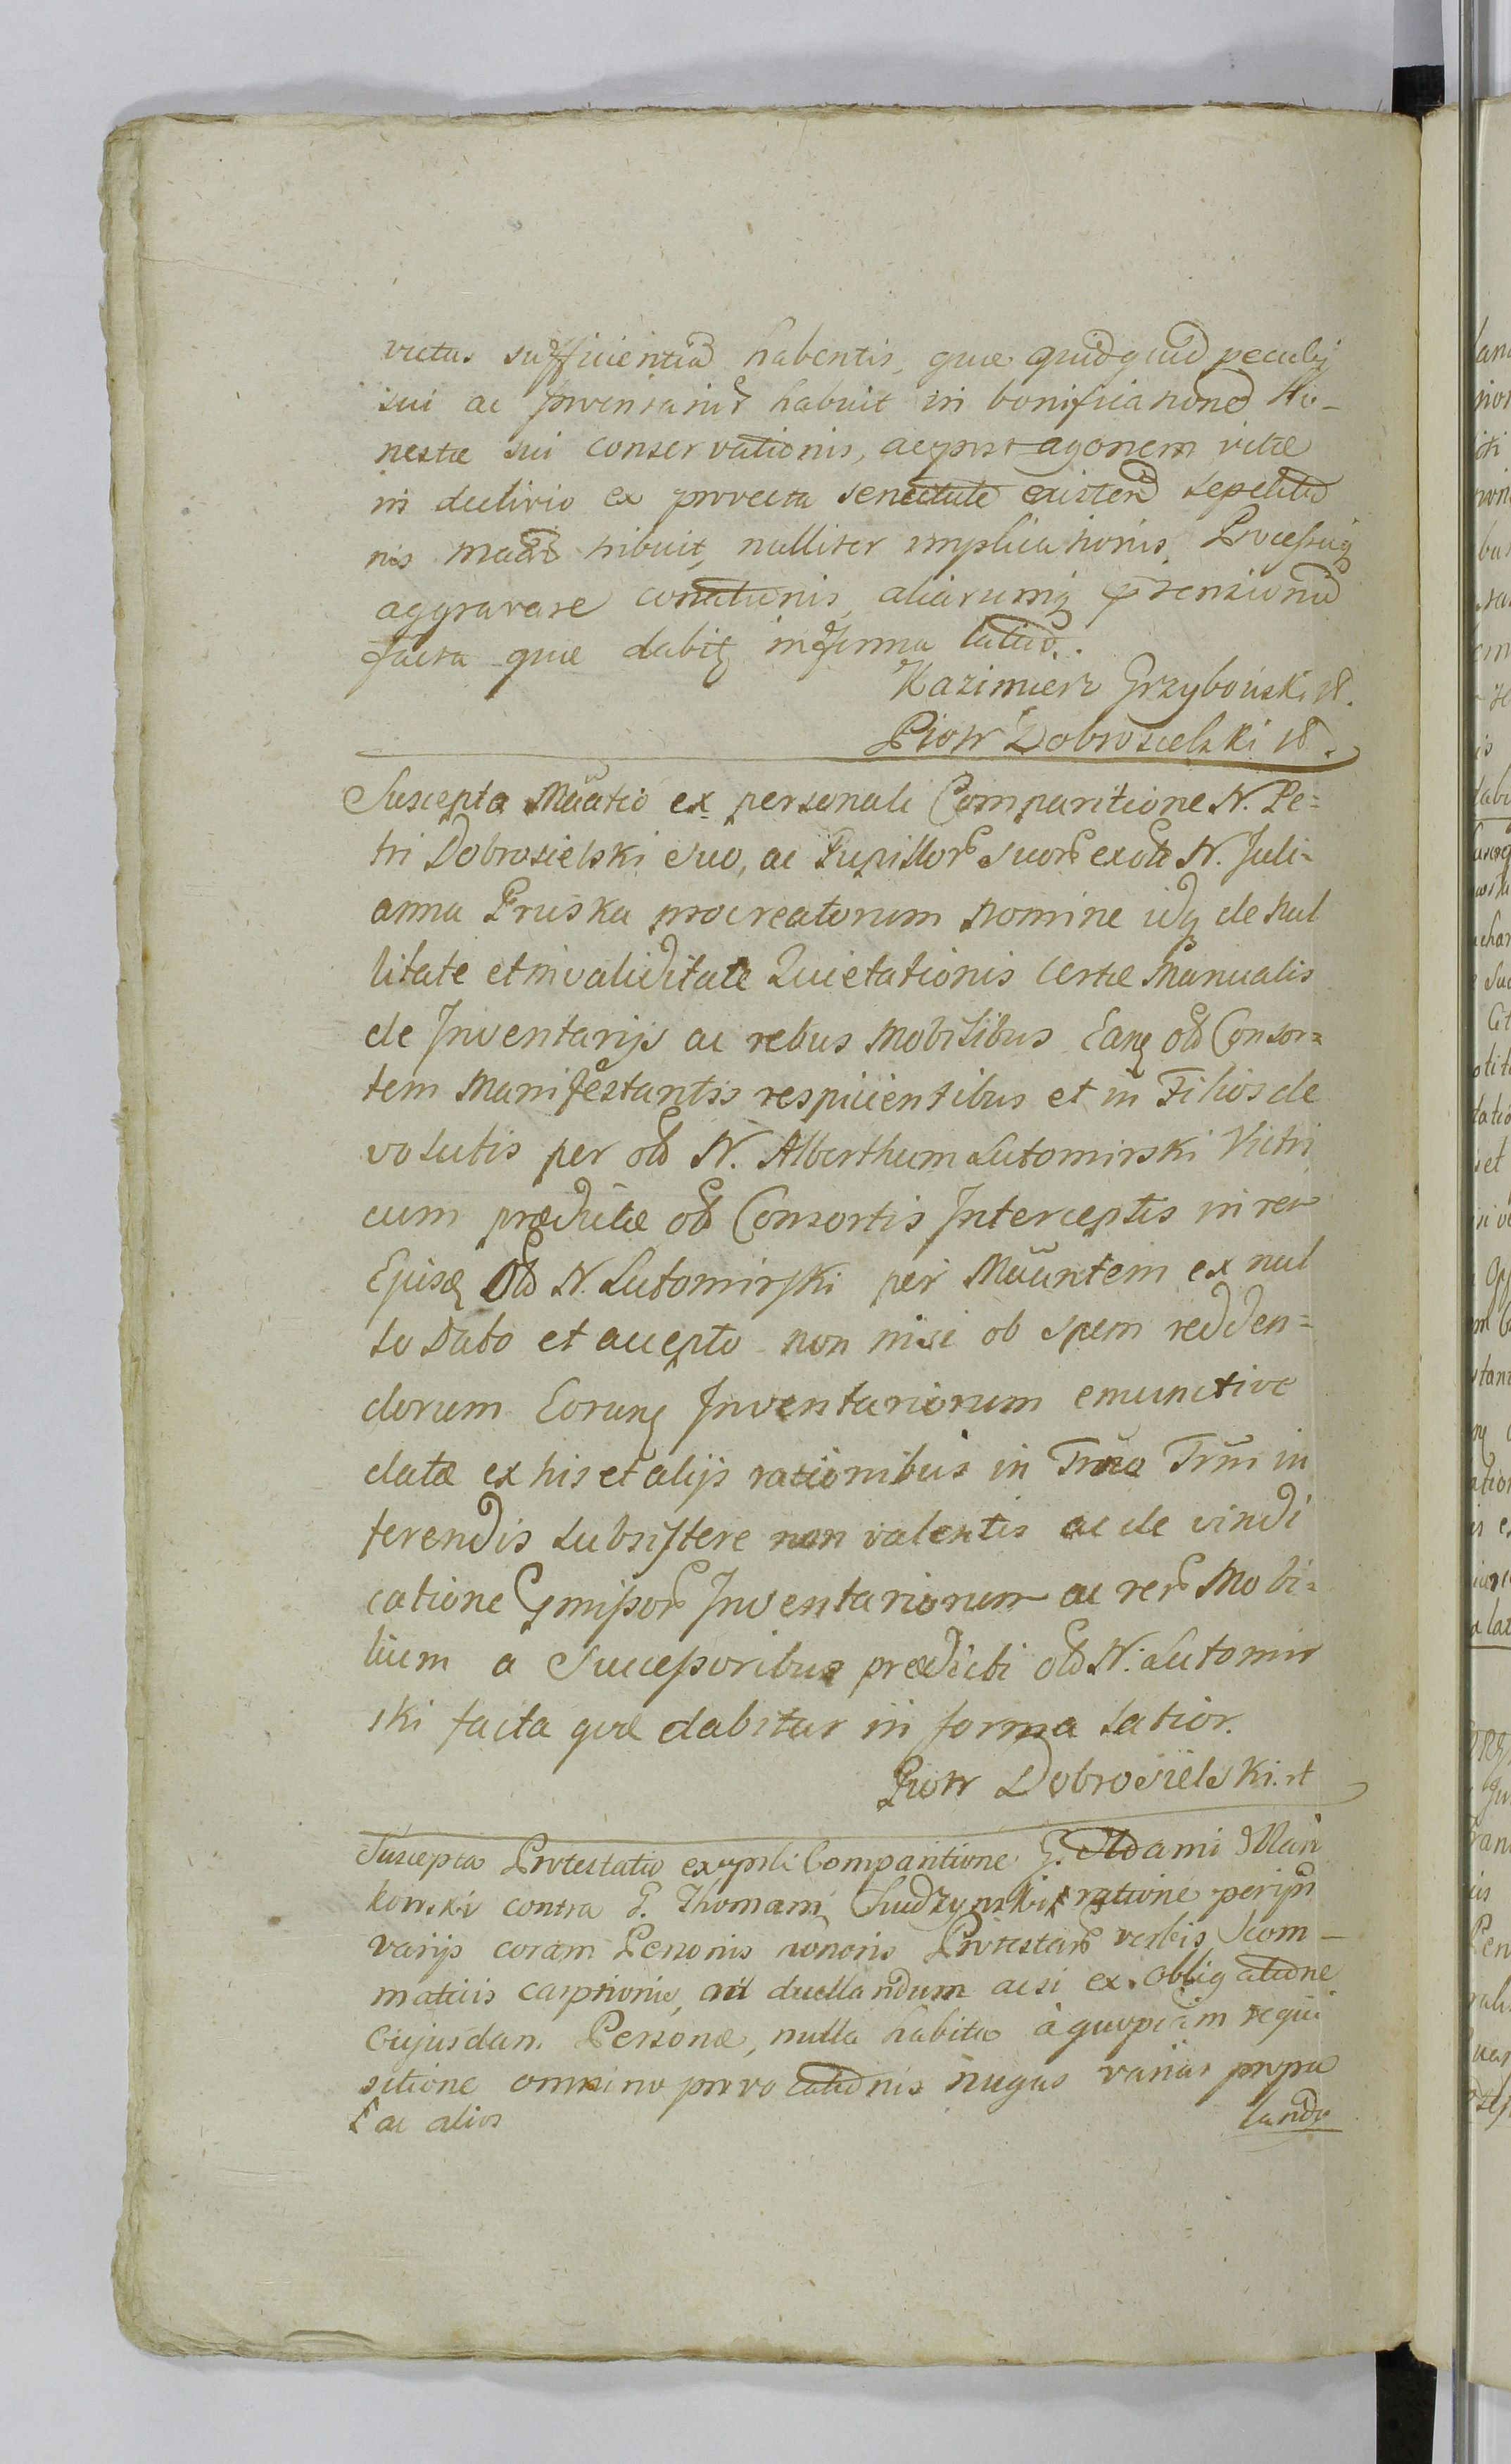 victus sufficientiã habentis, quæ quidquid peculij
sui ac Inventariũ habuit in bonificationẽ Ho-
nestæ sui conservationis, ac post agonem vitæ
in delirio ex provecta senectute existeñ sepelitio
nis tribuit, nulliter implicationis, Processuq
aggravare conationis, aliarumq prætensionũ
facta quæ dabitq in forma latiõ.
Kazimierz Grzyboński
Piotr Dobrosielski
Suscepta Mãatio ex personali Comparitione N. Pe=
tri Dobrosielski suo, ac Pupillorũ suorũ ex olã N. Juli=
anna Pruska procreatorum nomine idq de nul
litate et invaliditate Quietationis certæ Manualis
de Inventarijs ac rebus Mobilibus Eanq olã Consor=
tem Manifestantis respicientibus et in Filios de
volutis per olã N. Alberthum Lutomirski Vitri
cum prædictæ olã Consortis Interceptis in rem
Ejusq Olã N. Lutomirski per Mãantem ex nul
lo Dato et accepto non nisi ob spem redden=
dorum Eorunq Inventariorum emunctive
datæ ex his et alijs rationibus in Trm̃o Trm̃i in
ferendis subsistere non valentis ac de vindi
catione Inventariorum ac rerũ Mobi=
lium a Successoribus prædicti olã N. Lutomir
ski facta quæ dabitur in forma latior.
Piotr Dobrosielski
Suscepta Protestatio ex Comparitione G. Adami Man
kowski contra G. Thomam Chudzynski ratione
varijs coram Personis honoris Protestañ verbis scom-
maticis carptionis, ad duellandum acsi ex obligatione
Cujusdam Personæ, nulla habita à quopiam requi
sitione omnino provocationis nugas varias propa
ac alios
lando